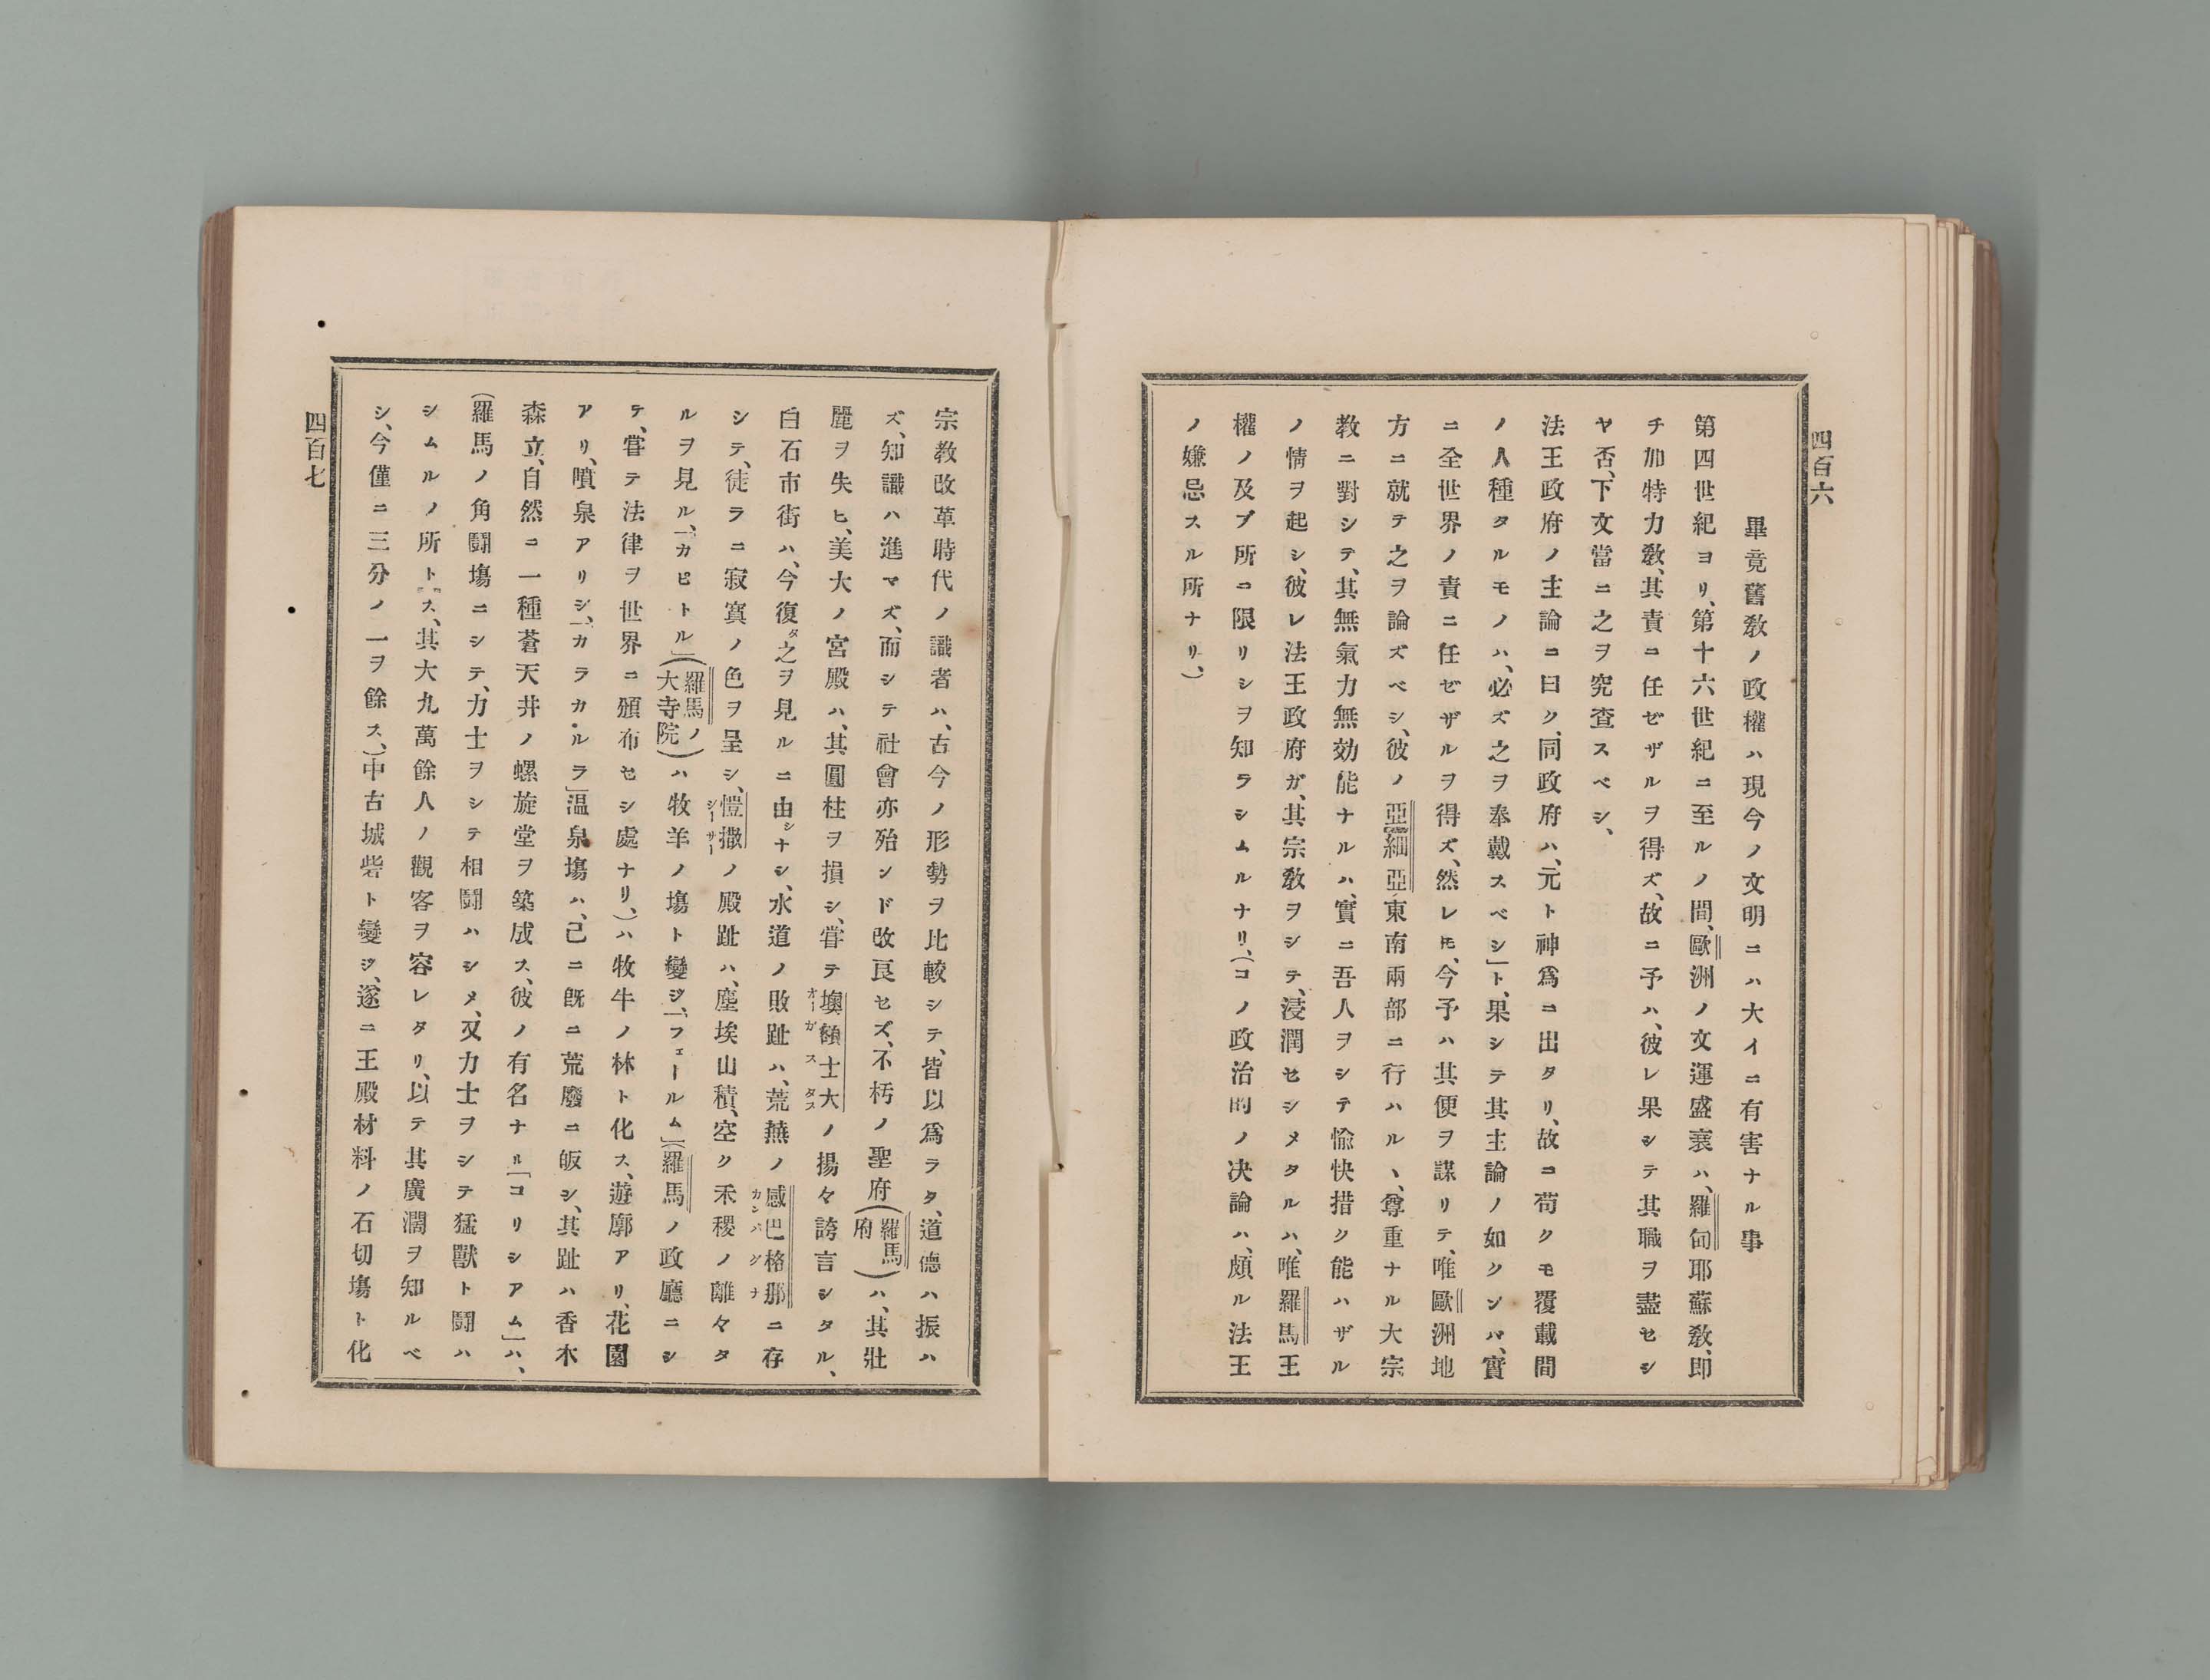 四百六
畢竟舊敎ノ政權ハ現今ノ文明ニハ大イニ有害ナル事
第四世紀ヨリ、第十六世紀ニ至ルノ間、歐洲ノ文運盛衰ハ、羅甸耶蘇敎、即
チ加特力敎、其責ニ任ゼザルヲ得ズ、故ニ予ハ、彼レ果シテ其職ヲ盡セシ
ヤ否、下文當ニ之ヲ究査スベシ、
法王政府ノ主論ニ曰ク、同政府ハ、元ト神爲ニ出タリ、故ニ苟クモ覆載間
ノ人種タルモノハ、必ズ之ヲ奉戴スベシ」ト、果シテ其主論ノ如クンバ、實
ニ全世界ノ責ニ任ゼザルヲ得ズ、然レ𪜈、今予ハ其便ヲ謀リテ、唯歐洲地
方ニ就テ之ヲ論ズベシ、彼ノ亞細亞東南兩部ニ行ハルヽ、尊重ナル大宗
教ニ對シテ、其無氣力無効能ナルハ、實ニ吾人ヲシテ愉快措ク能ハザル
ノ情ヲ起シ、彼レ法王政府ガ、其宗敎ヲシテ、浸潤セシメタルハ、唯羅馬王
權ノ及ブ所ニ限リシヲ知ラシムルナリ、(コノ政治的ノ决論ハ、頗ル法王
ノ嫌忌スル所ナリ、)
宗教改革時代ノ識者ハ、古今ノ形勢ヲ比較シテ、皆以爲ラタ、道德ハ振ハ
ズ、知識ハ進マズ、而シテ社會亦殆ンド改良セズ、不朽ノ聖府(羅馬府)ハ、其壯
麗ヲ失ヒ、美大ノ宮殿ハ、其圓柱ヲ損シ、甞テ墺額士大オーガスタスノ揚々誇言シタル、
白石市街ハ、今復タ之ヲ見ルニ由シナシ、水道ノ敗趾ハ、荒蕪ノ感巴格那カンパグナニ存
シテ、徒ラニ寂寞ノ色ヲ呈シ、愷撒シーサーノ殿趾ハ、塵埃山積、空ク禾稷ノ離々タ
ルヲ見ル、「カピトル」(羅馬ノ大寺院)ハ牧羊ノ塲ト變ジ、「フェールム」(羅馬ノ政廳ニシ
テ、甞テ法律ヲ世界ニ頒布セシ處ナリ、)ハ牧牛ノ林ト化ス、遊廓アリ、花園
アリ、噴泉アリシ、「カラカ・ルラ」温泉塲ハ、己ニ既ニ荒廢ニ皈シ、其趾ハ香木
森立、自然ニ一種蒼天井ノ螺旋堂ヲ築成ス、彼ノ有名ナル「コリシアム」ハ、
(羅馬ノ角鬪塲ニシテ、力士ヲシテ相鬪ハシメ、又力士ヲシテ猛獸ト鬪ハ
シムルノ所トス、其大九萬餘人ノ觀客ヲ容レタリ、以テ其廣濶ヲ知ルベ
シ、今僅ニ三分ノ一ヲ餘ス、)中古城砦ト變ジ、遂ニ王殿材料ノ石切塲ト化
四百七